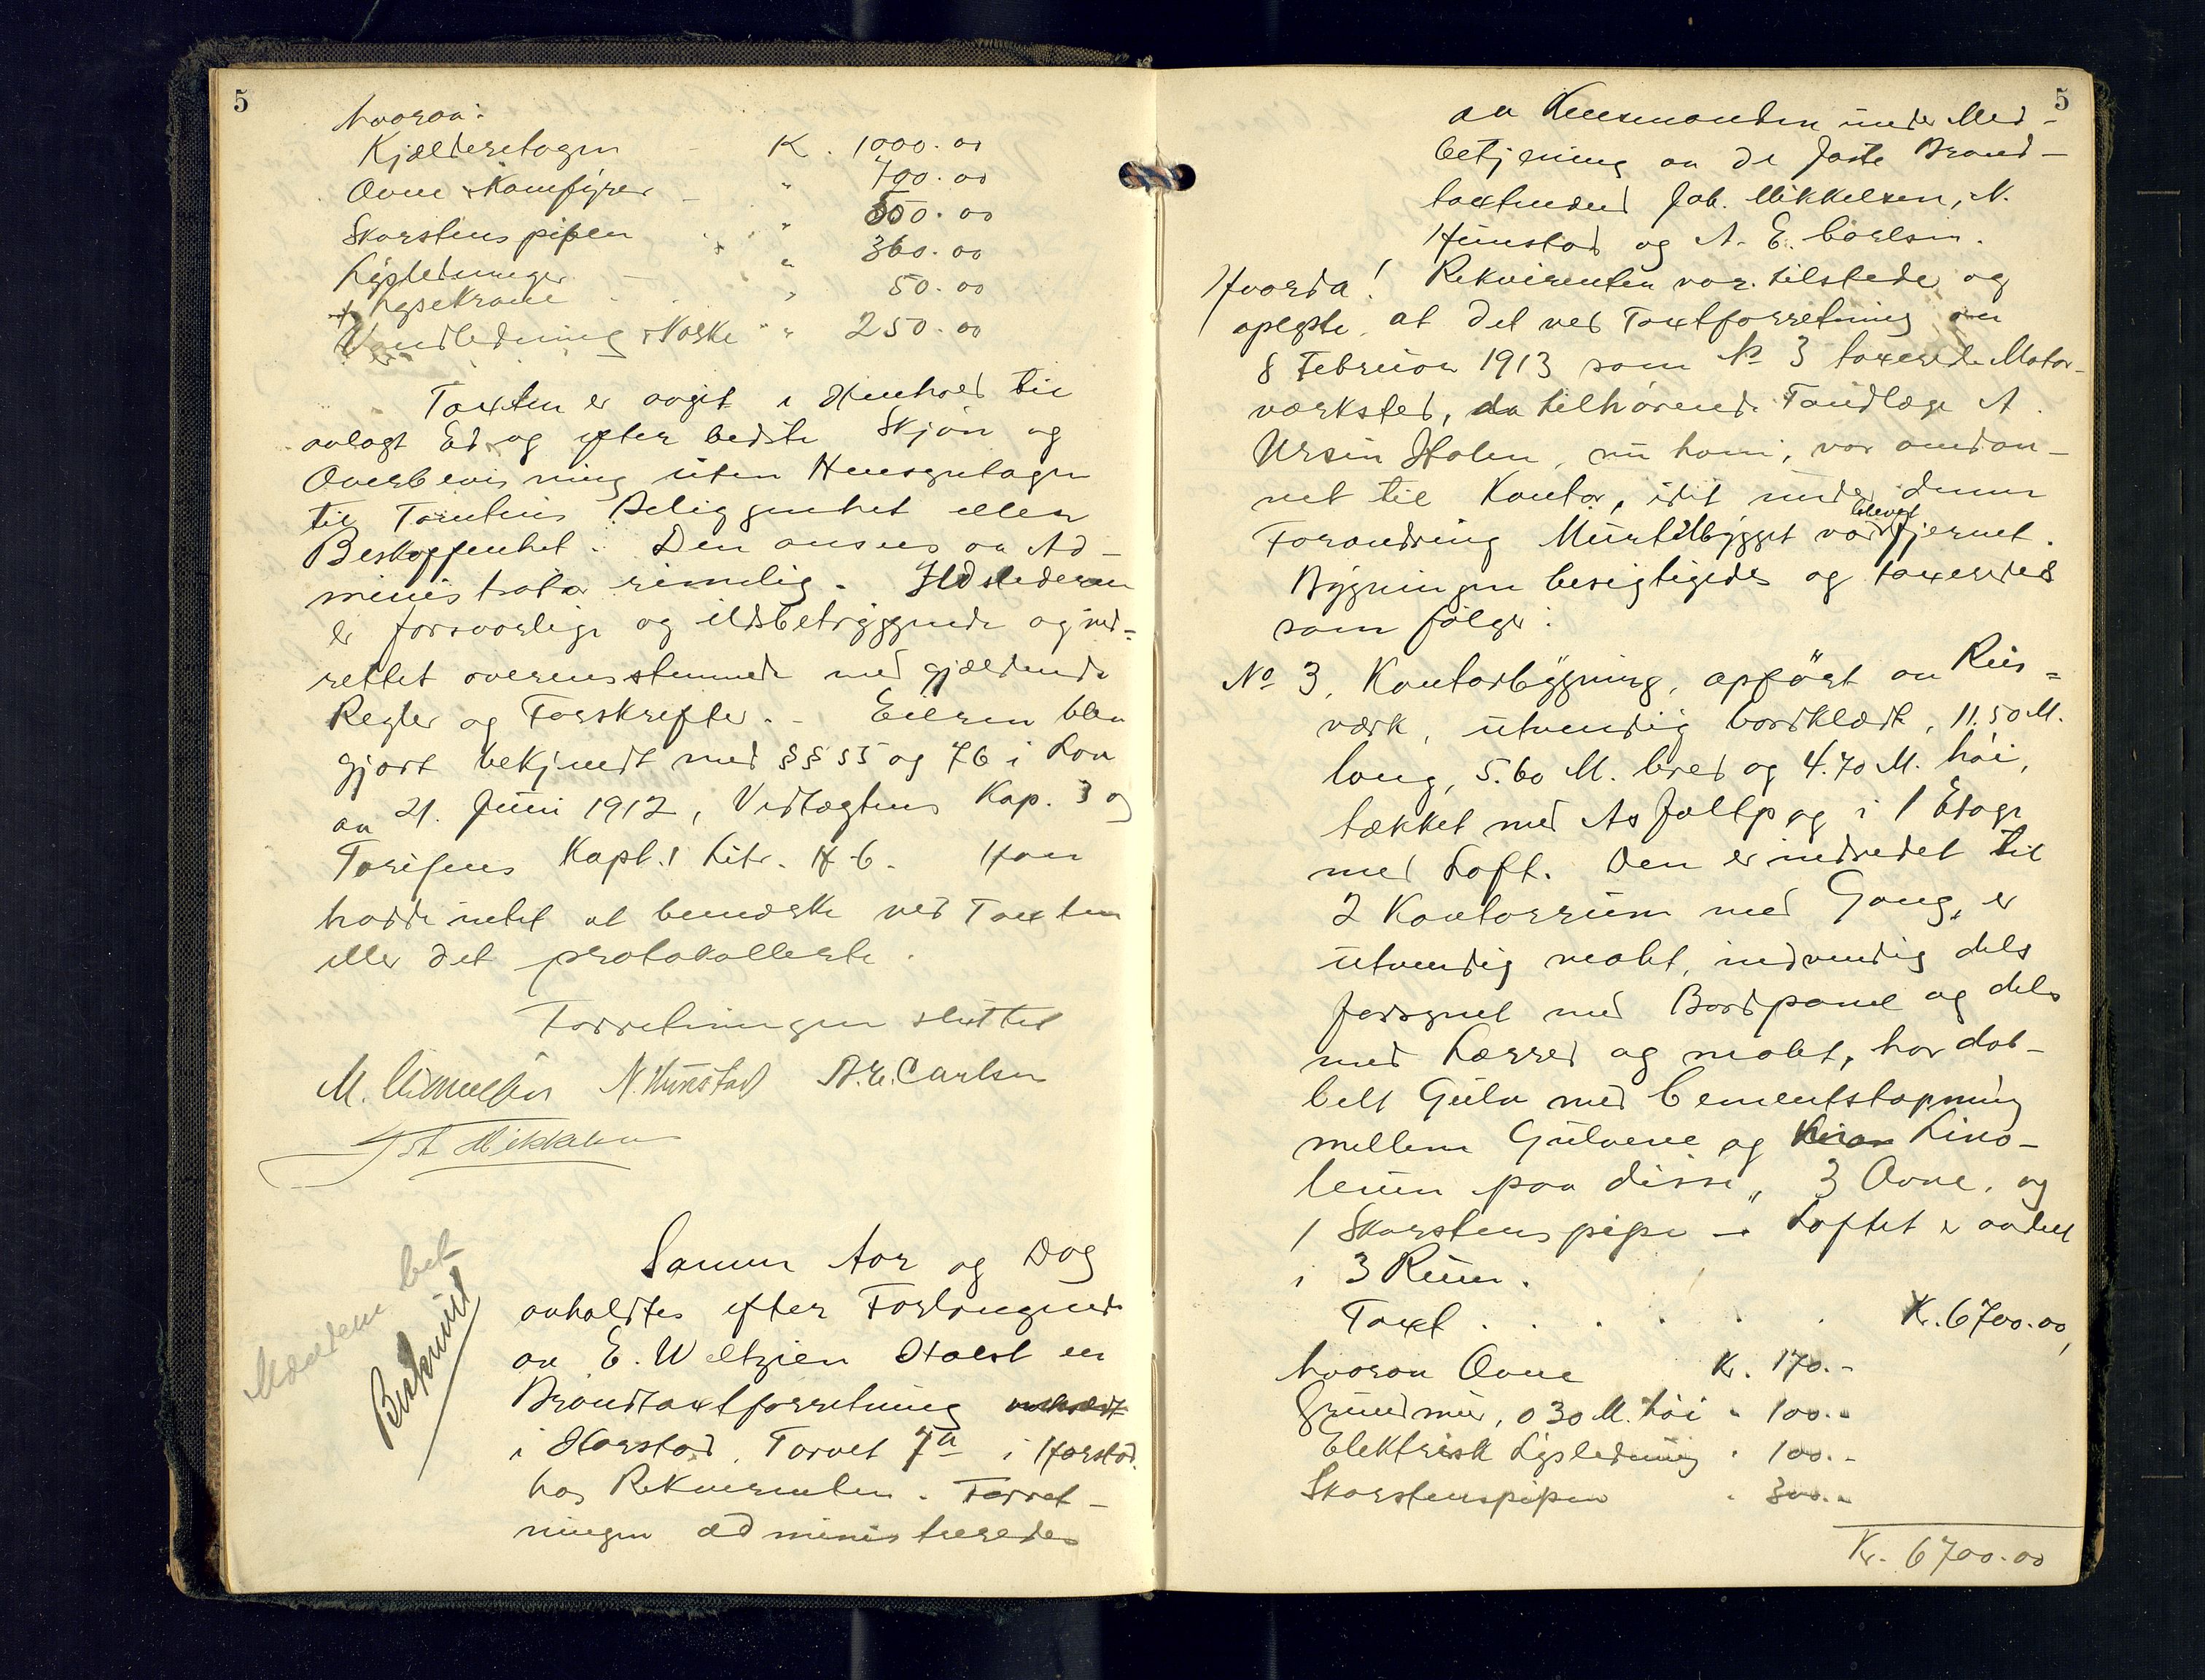 5
hvorav:
Kjælderetagen - K. 1000.00
Ovne & Komfyrer - " 700.00
Skorstenspipen " 550.00
Lysledninger - " 360.00
+ Lysekrone " 50.00
Vandledning & Vaske " " 250.00
Taxten er avgit i Henhold til
avlagt Ed og efter bedste Skjøn og
Overbevisning uten Hensyntagen
til Tomtens Beliggenhet eller
Beskaffenhet. Den ansees av Ad-
ministrator rimelig. Ildstederne
er forsvarlige og ildsbetryggende og ind-
rettet overensstemmende med gjældende
Regler og Forskrifter. - Eieren blev
gjort bekjendt med §§ 55 og 76 i Lov
av 21. Juni 1912, Vedtægtens Kap. 3 og
Tarifens Kapt. 1 Litr. H-6. Han
hadde intet at bemerke ved Taxten
eller det protokollerte.
Forretningen sluttet
M. N. Hunstad A. E. Carlsen
Joh Mikkelsen
Samme Aar og Dag
avholdtes efter Forlangende
av E. Weltzien Holst en
Brandtaxtforretning
i Harstad. Torvet 7a i Harstad.
hos Rekvirenten. Forret-
ningen administreredes
bet
5
av Lensmanden under Med-
betjening av de faste Brand-
taxtmænd Joh. Mikkelsen, N.
Hunstad og A. E. Carlsen.
Hvorda! Rekvirenten var tilstede og
oplyste, at det ved Taxtforretning av
8 Februar 1913 som No 3 taxerede Motor-
værksted, da tilhørende Tandlæge A.
Ursin Holm, nu ham, var omdan-
net til Kontor, idet under denne
Forandring Murtilbygget var blevet fjernet.
Bygningen besigtigedes og taxeredes
som følger:
No 3. Kontorbygning, opført av Reis-
værk, utvendig bordklædt, 11.50 M.
lang, 5.60 M. bred og 4.70 M. høi,
tækket med Asfaltp og i 1 Etage
med Loft. Den er indredet til
2 Kontorrum med Gang, er
utvendig malet, indvendig dels
forsynet med Bordpanel og dels
med Lærred og malet, har dob-
belt Gulv med Cementstøpning
mellem Gulvene og Lino-
leum paa disse, 3 Ovne, og
1 Skorstenspipe - Loftet er avdelt
i 3 Rum.
Taxt . . . . . . Kr. 6700.00,
hvorav Ovne Kr. 170.-
Grundmur, 0 30 M. høi " 100.-
Elektrisk Lysledning " 100.-
Skorstenspipen " 300.-
Kr. 6700.00